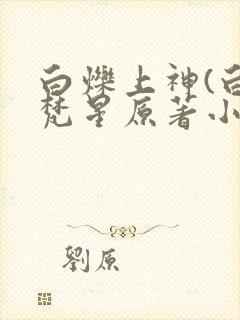 白爍上神(白
梵星原著小
劉原